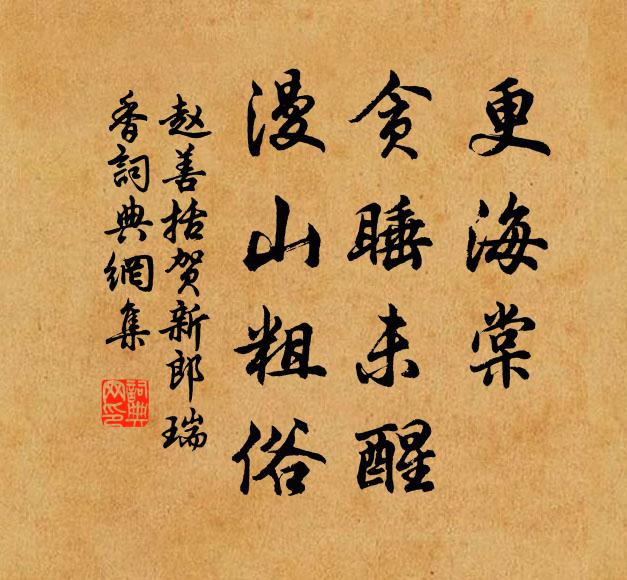 更海棠
贪睡未醒
漫山粗俗
赵善括贺新郎瑞
香詞典網集
詞典
网印